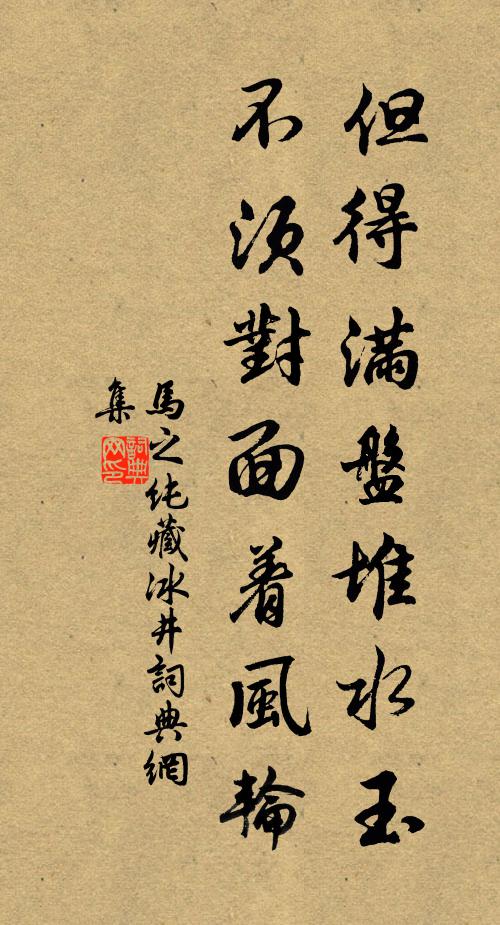 但得滿盤堆水玉
不須對面着風輪
馬之純藏冰井詞典網
集
詞典网印